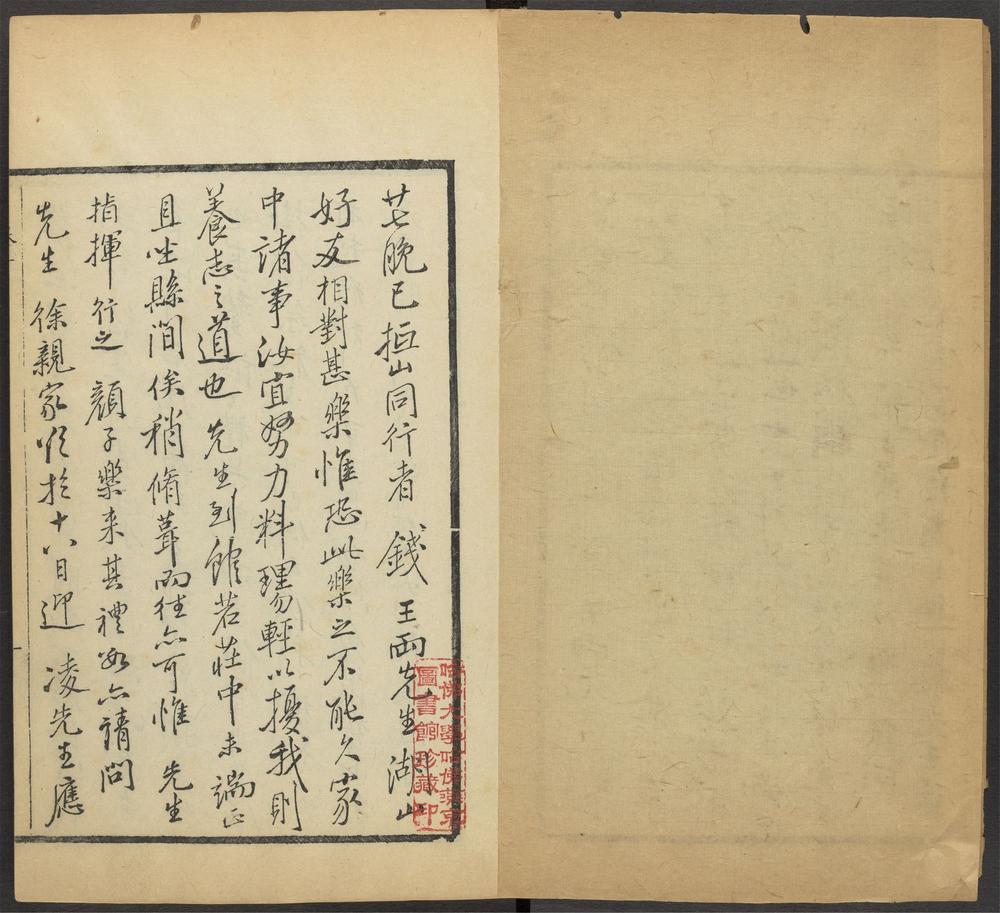 廿七晚已抵山同行者 錢 王兩先生湖山
好友相對甚樂惟恐此樂之不能久家
中諸事汝宜努力料理勿輕以擾我則
養志之道也 先生到館若莊中未端正
且坐縣澗俟稍脩葺而往亦可惟 先生
指揮行之 顏子樂來其禮數亦請問
先生 徐親家順於十八日迎 凌先生應
哈佛大學哈佛燕京
圖書館珍藏印